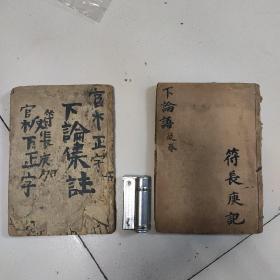 官木正字
下論集註
符長庚
官板下正字
下論語
符長庚記